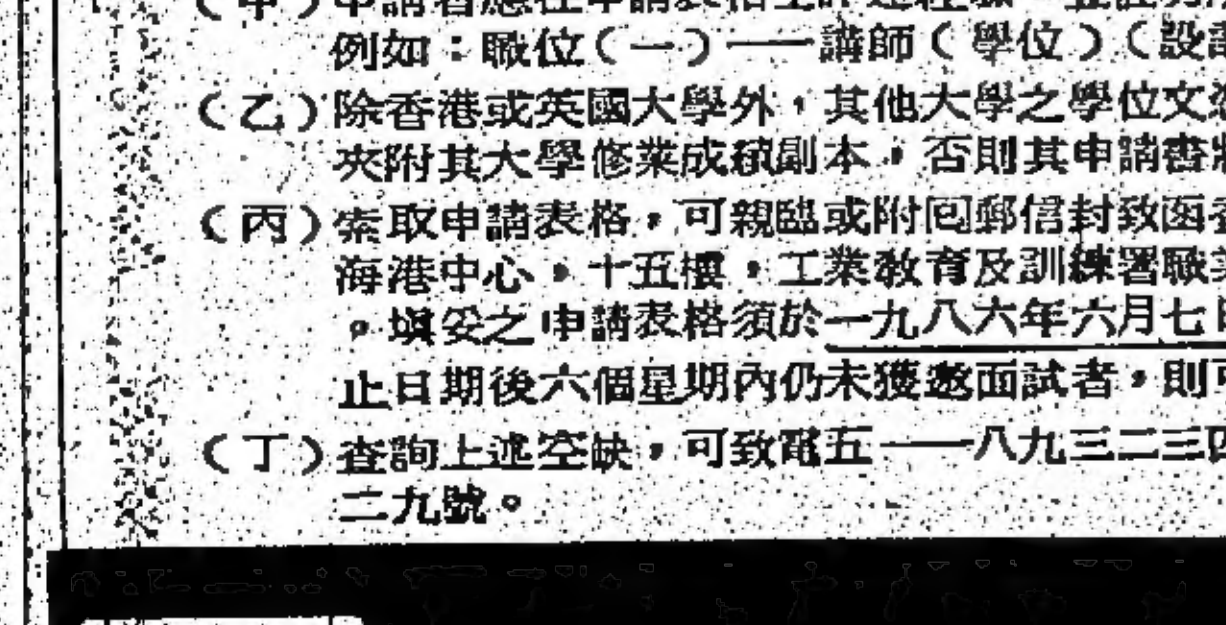 （甲）申請者應在申請表格上詳述經驗，並註明
例如：職位（一）——講師（學位）（設計
（乙）除香港或英國大學外，其他大學之學位文憑
夾附其大學修業成績副本，否則其申請書將
（丙）索取申請表格，可親臨或附囘郵信封致函香
海港中心，十五樓，工業教育及訓練署職業
。塡妥之申請表格須於一九八六年六月七日
止日期後六個星期內仍未獲邀面試者，則可
（丁）查詢上述空缺，可致電五——八九三二三四
二九號。